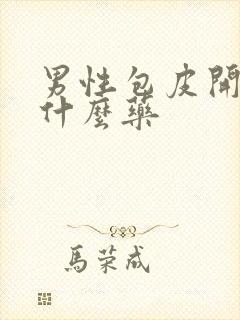 男性包皮開
什麼藥
馬荣成